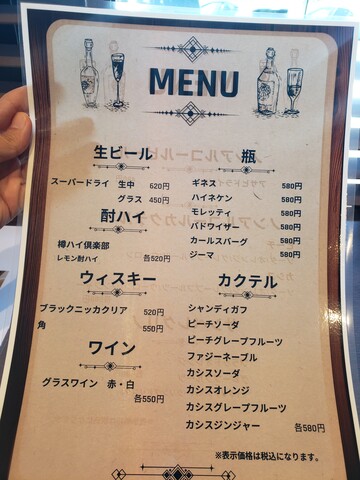 MENU
生ビール
スーパードライ 生中 620円
グラス 450円
酎ハイ
樽ハイ倶楽部
レモン酎ハイ 各520円
ウィスキー
ブラックニッカクリア 520円
角 550円
ワイン
グラスワイン 赤・白
各550円
瓶
ギネス 580円
ハイネケン 580円
モレッティ 580円
バドワイザー 580円
カールスバーグ 580円
ジーマ 580円
カクテル
シャンディガフ
ピーチソーダ
ピーチグレープフルーツ
ファジーネーブル
カシスソーダ
カシスオレンジ
カシスグレープフルーツ
カシスジンジャー 各580円
※表示価格は税込になります。